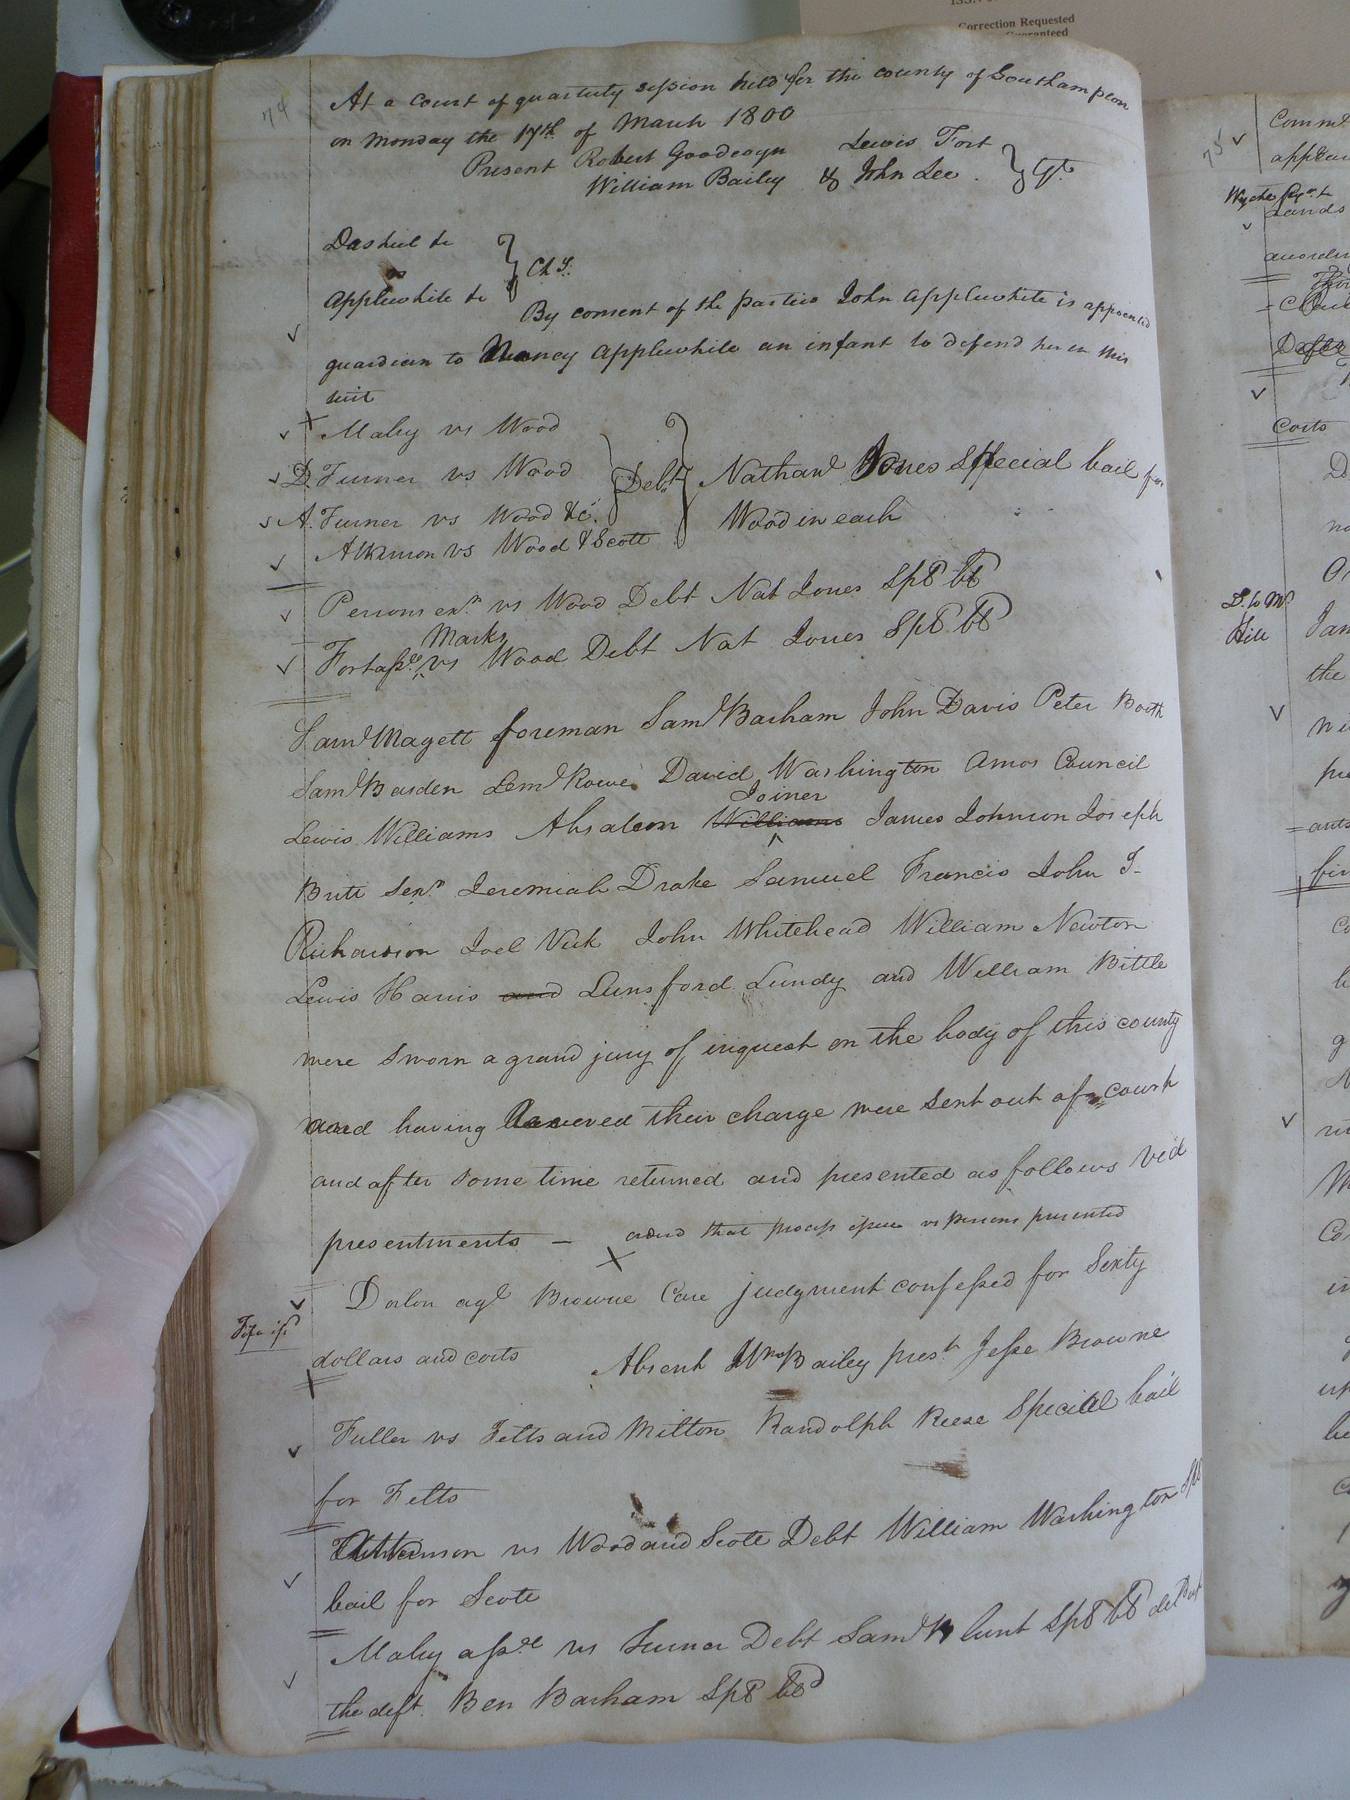 Correction Requested
Guaranteed
74
At a court of quarterly session held for the county of Southampton
on monday the 17th of March 1800
Present Robert Goodwyn Lewis Fort
William Bailey & John Lee Gt
Dashiel &c
vs
Applewhite &c Chy.
By consent of the parties John Applewhite is appointed
guardian to Nancy Applewhite an infant to defend her in this
suit
Maby vs Wood
D Turner vs Wood
A. Turner vs Wood &c.
Atkinson vs Wood & Scott
Debt
Nathanl Jones Special bail for
Wood in each
Persons exr. vs Wood Debt Nat Jones Spl bl
Marks
Fort assee vs Wood Debt Nat Jones Spl bl
Saml Magett foreman Saml Barham John Davis Peter Booth
Saml Bearden Leml Rowe David Washington Amos Council
Joiner
Lewis Williams Absalom Williams James Johnson Joseph
Britt Senr Jeremiah Drake Samuel Francis John T
Richardson Joel Vick John Whitehead William Newton
Lewis Harris and Lunsford Lundy and William Bittle
were sworn a grand jury of inquest on the body of this county
and having received their charge were sent out of court
and after some time returned and presented as follows vid
presentments — ordered that process issue vs persons presented
Dorlon agt Browne Case judgment confessed for Sixty
Fifa iss
dollars and costs Absent Wm Bailey prest Jesse Browne
Fuller vs Felts and Mitton Randolph Reese Special bail
for Felts
Atkinson vs Wood and Scott Debt William Washington Spl
bail for Scott
Maby assee vs Turner Debt Saml Blunt Spl bl
the deft. Ben Barham Spl bl
75
Comm
appear
Lands
accordin
Costs
Hill
Jam
the